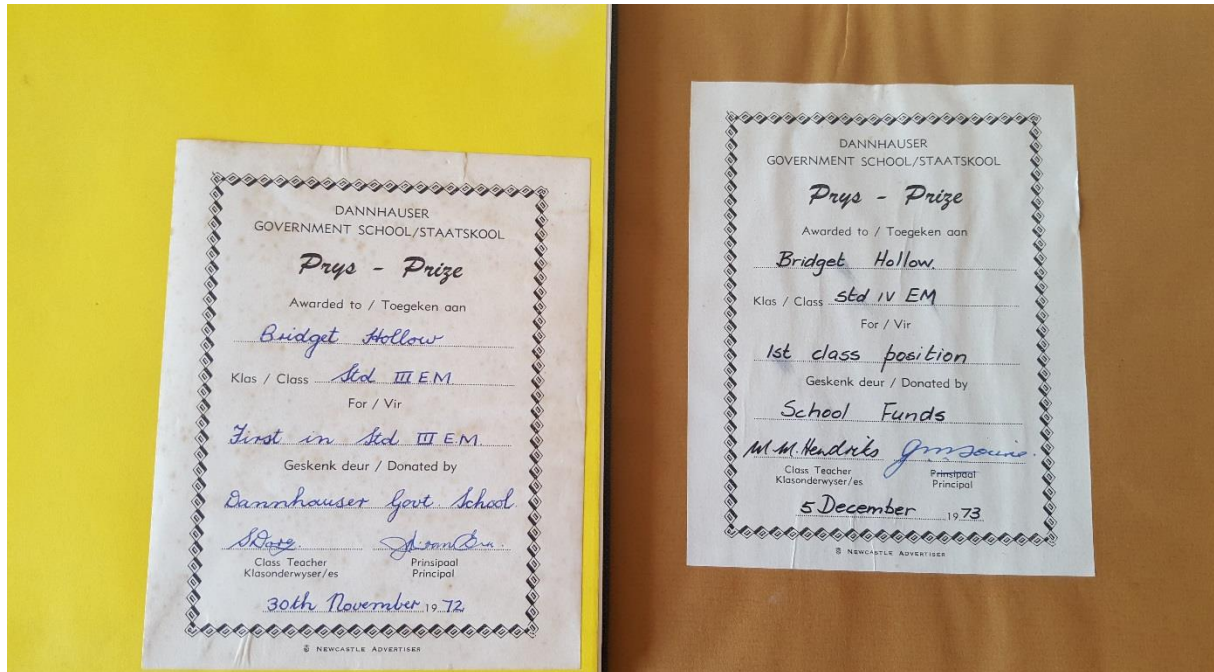 DANNHAUSER
GOVERNMENT SCHOOL/STAATSKOOL
Prys - Prize
Awarded to / Toegeken aan
Bridget Hollow
Klas / Class Std III E.M.
For / Vir
First in Std III E.M.
Geskenk deur / Donated by
Dannhauser Govt School
Class Teacher
Klasonderwyser/es
Prinsipaal
Principal
30th November 1972
NEWCASTLE ADVERTISER
DANNHAUSER
GOVERNMENT SCHOOL/STAATSKOOL
Prys - Prize
Awarded to / Toegeken aan
Bridget Hollow.
Klas / Class Std IV EM
For / Vir
1st class position
Geskenk deur / Donated by
School Funds
M.M. Hendriks
Class Teacher
Klasonderwyser/es
Prinsipaal
Principal
5 December 1973
NEWCASTLE ADVERTISER